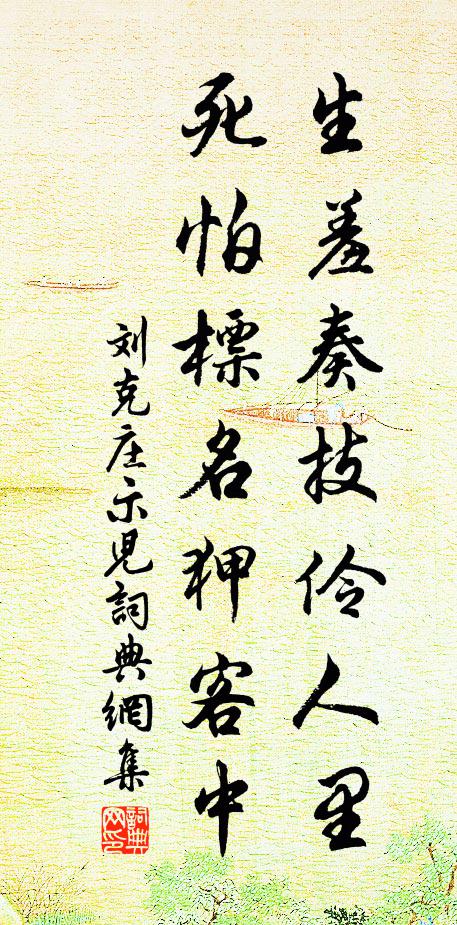 生羞奏技伶人里
死怕標名狎客中
刘克庄示児詞典網集
詞典网印